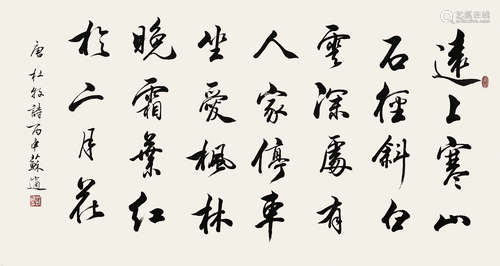 遠上寒山
石徑斜白
雲深處有
人家停車
坐愛楓林
晚霜葉紅
於二月花
唐杜牧詩丙申蘇適